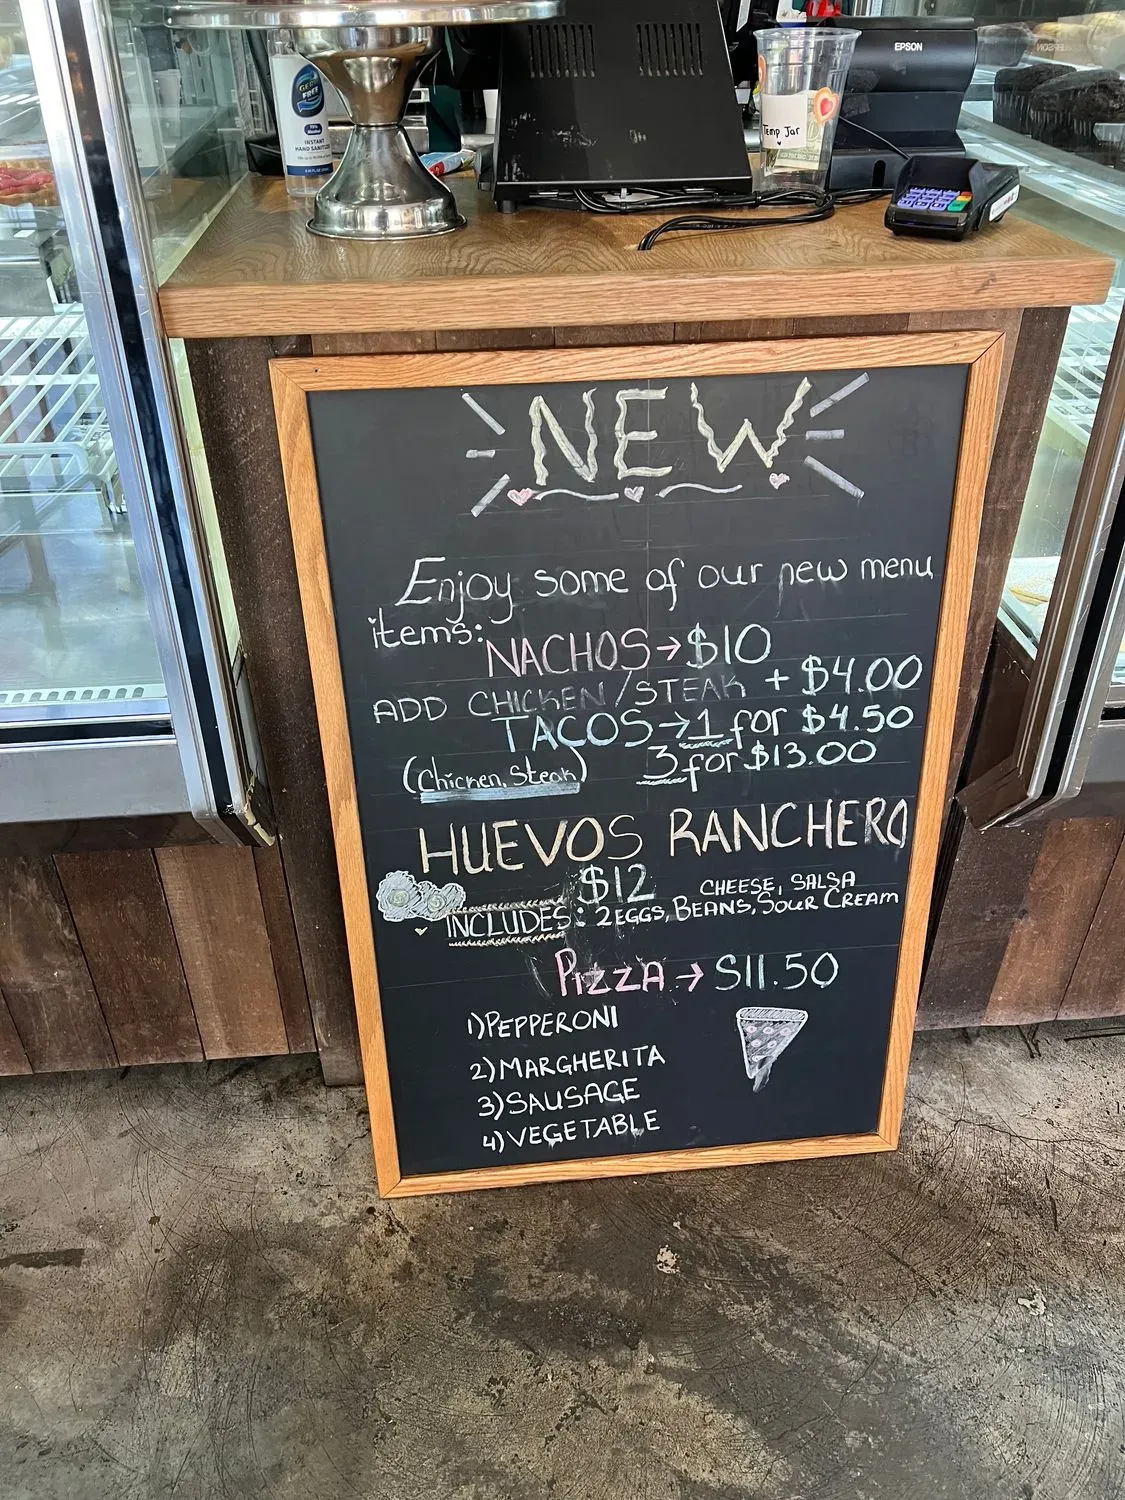 GERM
FREE
70%
Alcohol
INSTANT
HAND SANITIZER
EPSON
Temp Jar
NEW
Enjoy some of our new menu
items:
NACHOS→$10
ADD CHICKEN/STEAK + $4.00
TACOS→1 for $4.50
(Chicken, Steak) 3 for $13.00
HUEVOS RANCHERO
$12
CHEESE, SALSA
INCLUDES: 2EGGS, BEANS, SOUR CREAM
PIZZA→$11.50
1)PEPPERONI
2)MARGHERITA
3)SAUSAGE
4)VEGETABLE